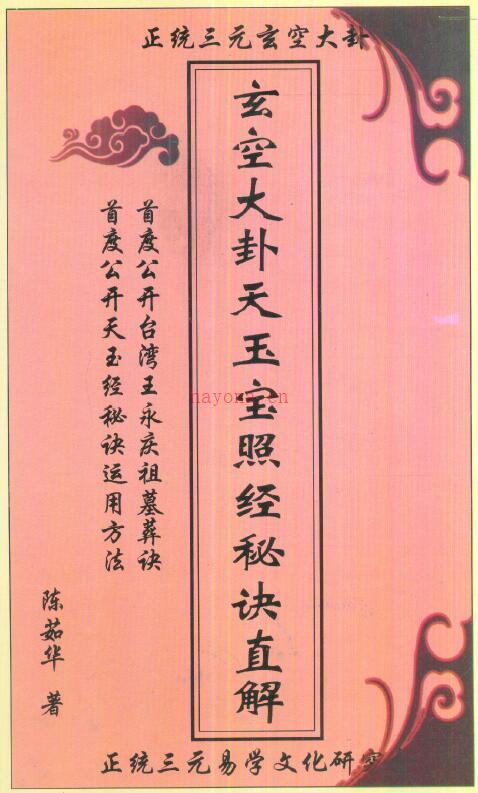 正统三元玄空大卦
玄空大卦天玉宝照经秘诀直解
首度公开台湾王永庆祖墓葬诀
首度公开天玉经秘诀运用方法
陈茹华 著
正统三元易学文化研究
nayona.cn